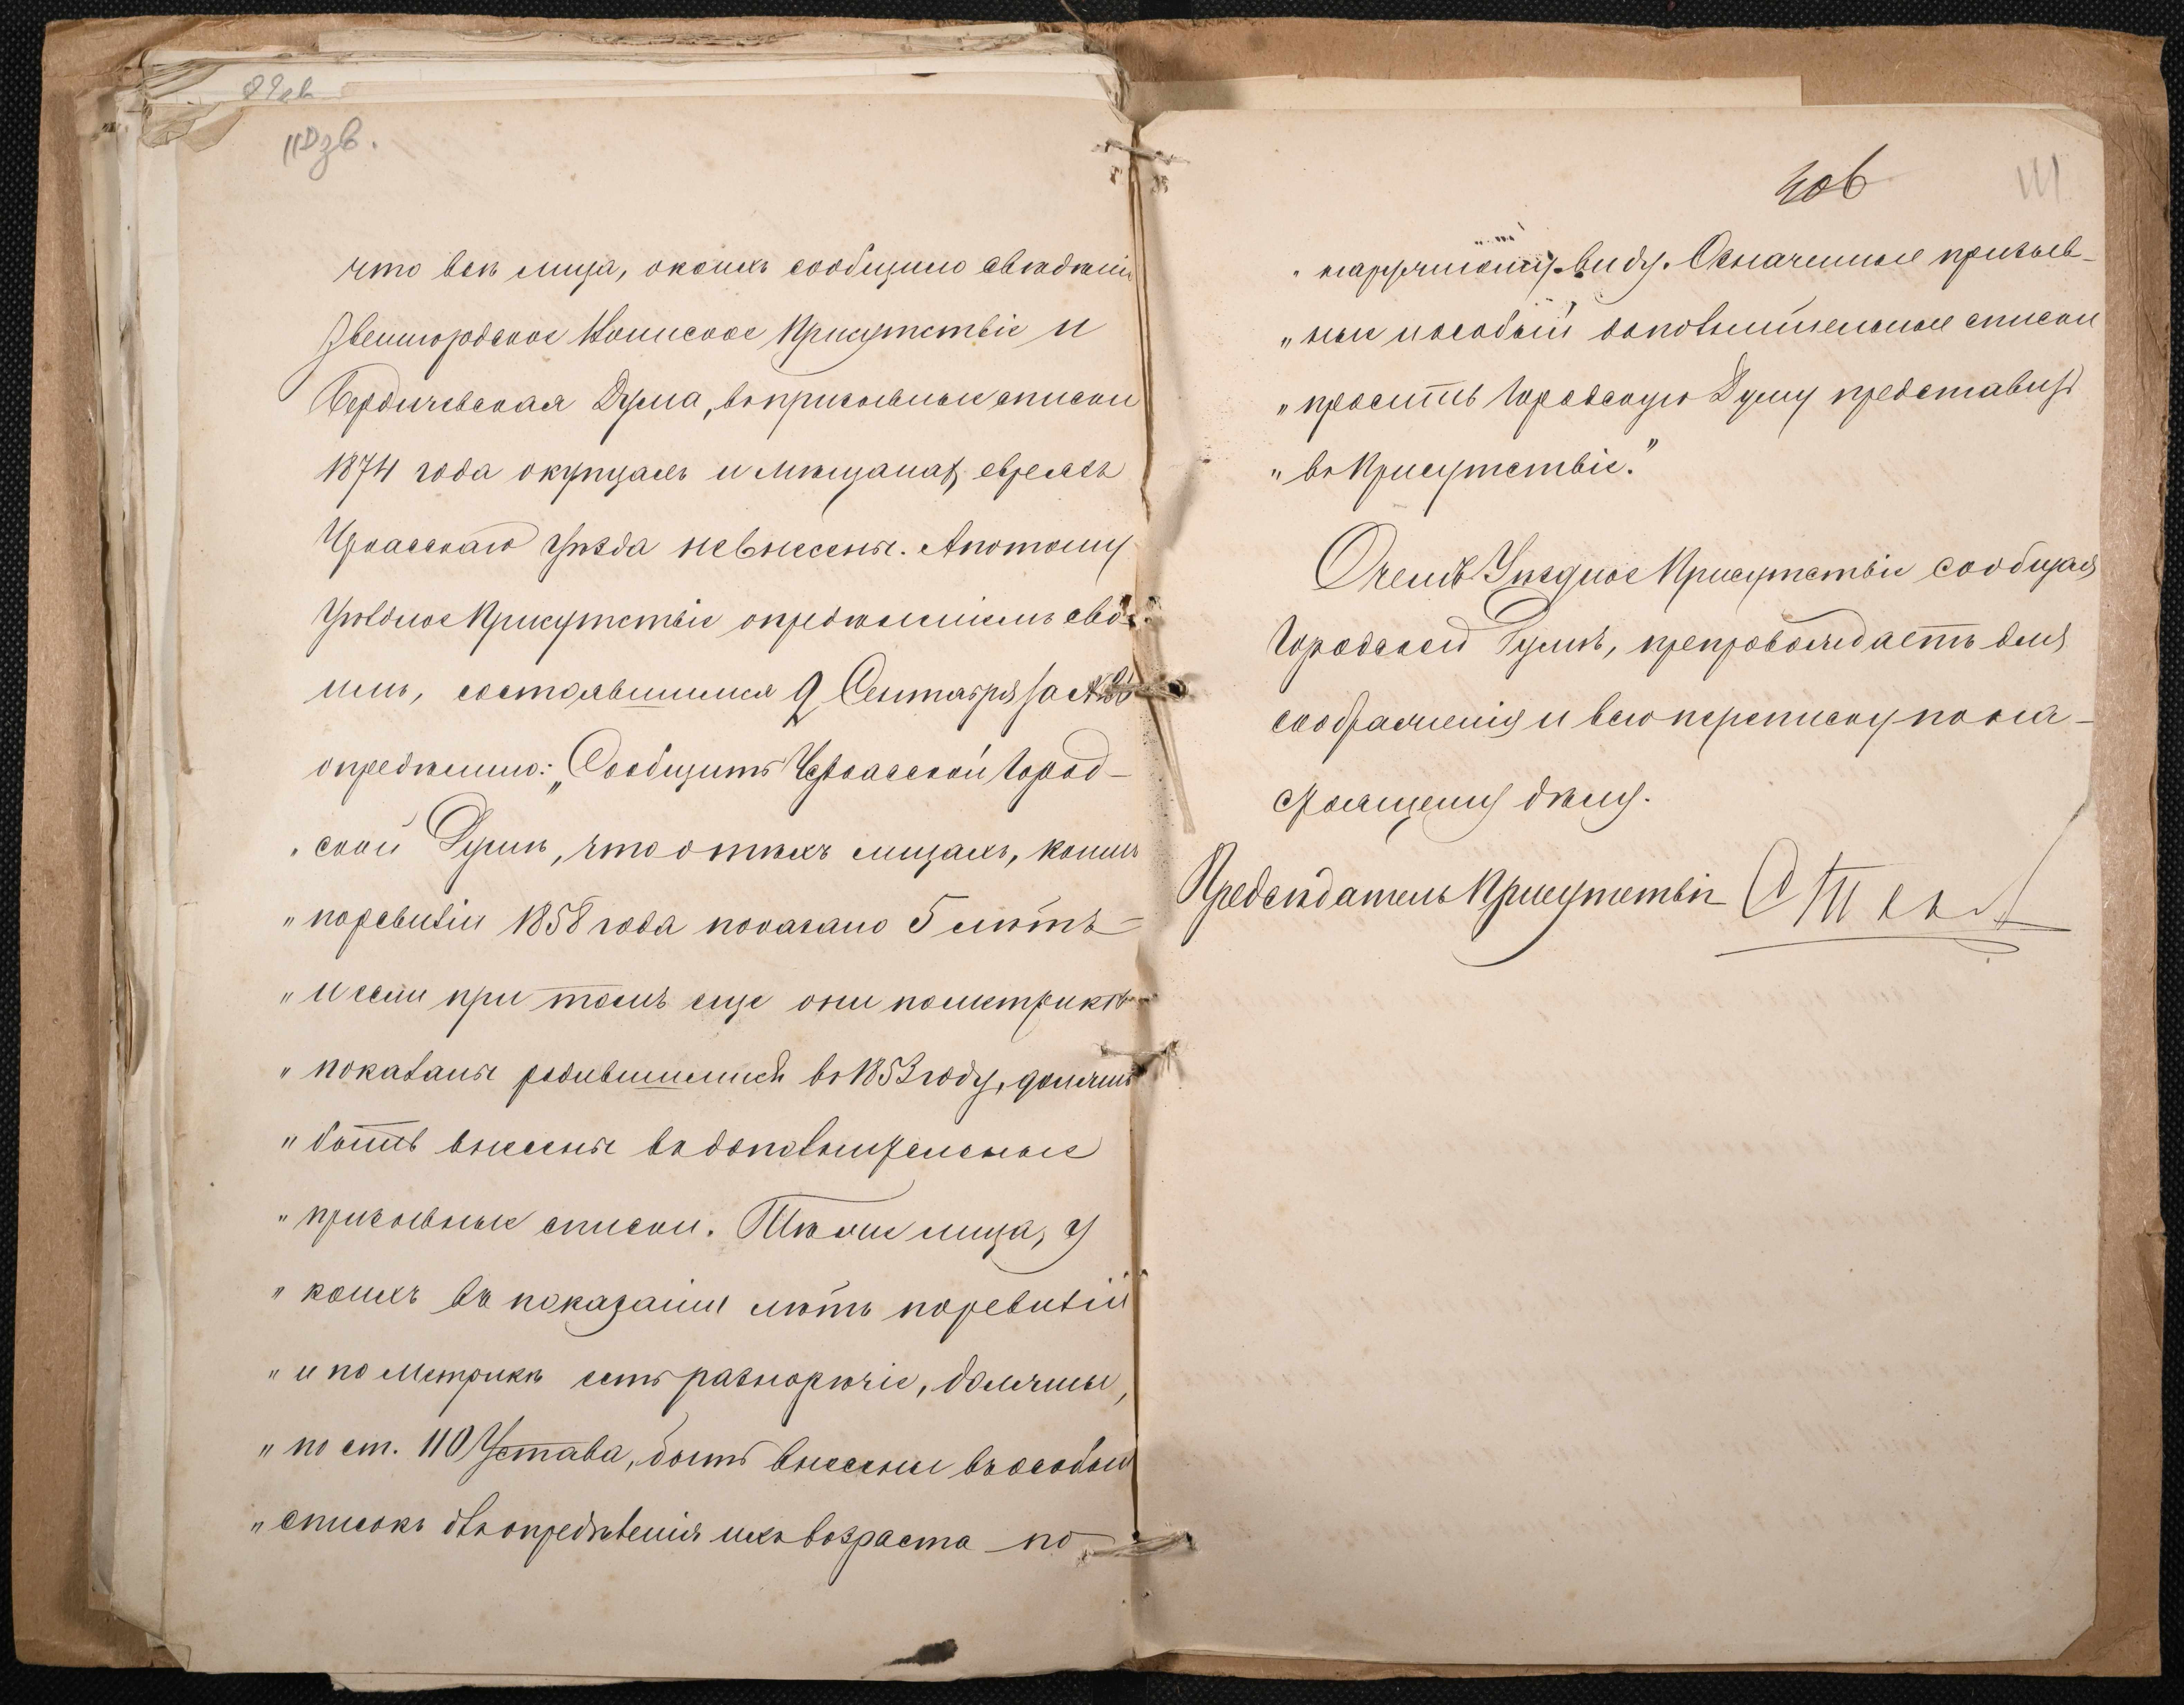 110 зв.
что всѣ лица, о коихъ сообщило свѣдѣнія
Звенигородское Воинское Присутствіе и
Бердичевская Дума, въ призывные списки
1874 года о купцахъ и мѣщанах евреяхъ
Черкасскаго Уѣзда не внесены. А потому
Уѣздное Присутствіе опредѣленіемъ сво-
имъ, состоявшимся 9 Сентября за №
опредѣлило: „Сообщить Черкасской Город-
„ской Думѣ, что о тѣхъ лицахъ, коимъ
„по ревизіи 1858 года показано 5 лѣтъ –
„и если при томъ еще они по метрикѣ
„показаны родившимися въ 1853 году, должны
„быть внесены въ дополнительные
„призывные списки. Тѣ же лица, у
„коихъ въ показаніи лѣтъ по ревизіи
„и по метрикѣ есть разнорѣчіе, должны,
„по ст. 110 Устава, быть внесены въ особый
„списокъ для опредѣленія ихъ возраста по
111
„наружному виду. Означенные призыв-
„ные и особый дополнительные списки
„проситъ Городскую Думу представить
„въ Присутствіе."
О чемъ Уѣздное Присутствіе сообщая
Городской Думѣ, препровождаетъ для
соображенія и всю переписку по на-
стоящему дѣлу.
Предсѣдатель Присутствія